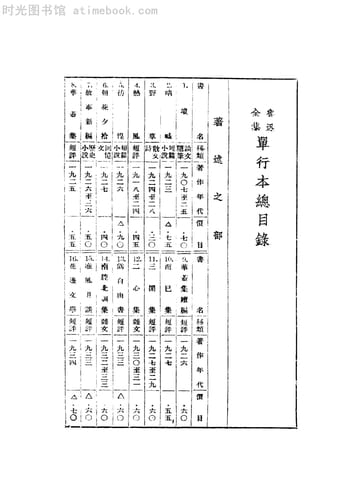 时光图书馆 - atimebook.com
魯迅全集 單行本總目錄
著述之部
書 名 種類 著作年代 價目
1. 墳 論文 隨筆 一九〇七至二五
2. 吶喊 短篇小說 一九二三 △·七五
3. 野草 散文詩 一九二四至二六 ·三〇
4. 熱風 短評 一九一八至二四 ·四五
5. 彷徨 短篇小說 一九二六 △·九〇
6. 朝花夕拾 回憶文 一九二七 ·四〇
7. 故事新編 歷史小說 一九二六至三六 ·五〇
8. 華蓋集 短評 一九二五 ·五五
書 名 種類 著作年代 價目
9. 華蓋集續編 短評 一九二六 ·六〇
10. 而已集 短評 一九二七 ·五五
11. 三閒集 短評 一九二七至二九 ·六〇
12. 二心集 雜文 一九三〇至三一 ·六〇
13. 僞自由書 短評 一九三三 △·六〇
14. 南腔北調集 雜文 一九三二至三三 ·六〇
15. 准風月談 短評 一九三三 △·六〇
16. 花邊文學 短評 一九三四 △·七〇